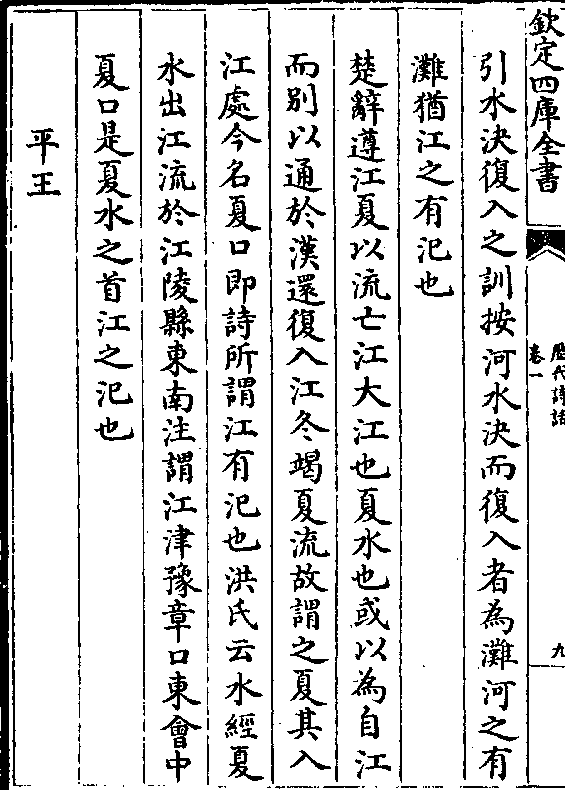 欽定四庫全書
歷代詩話
卷一
九
引水決復入之訓按河水決而復入者為灉河之有
灉猶江之有汜也
楚辭遵江夏以流亡江大江也夏水也或以為自江
而別以通於漢還復入江冬竭夏流故謂之夏其入
江處今名夏口即詩所謂江有汜也洪氏云水經夏
水出江流於江陵縣東南注謂江津豫章口東會中
夏口是夏水之首江之汜也
平王